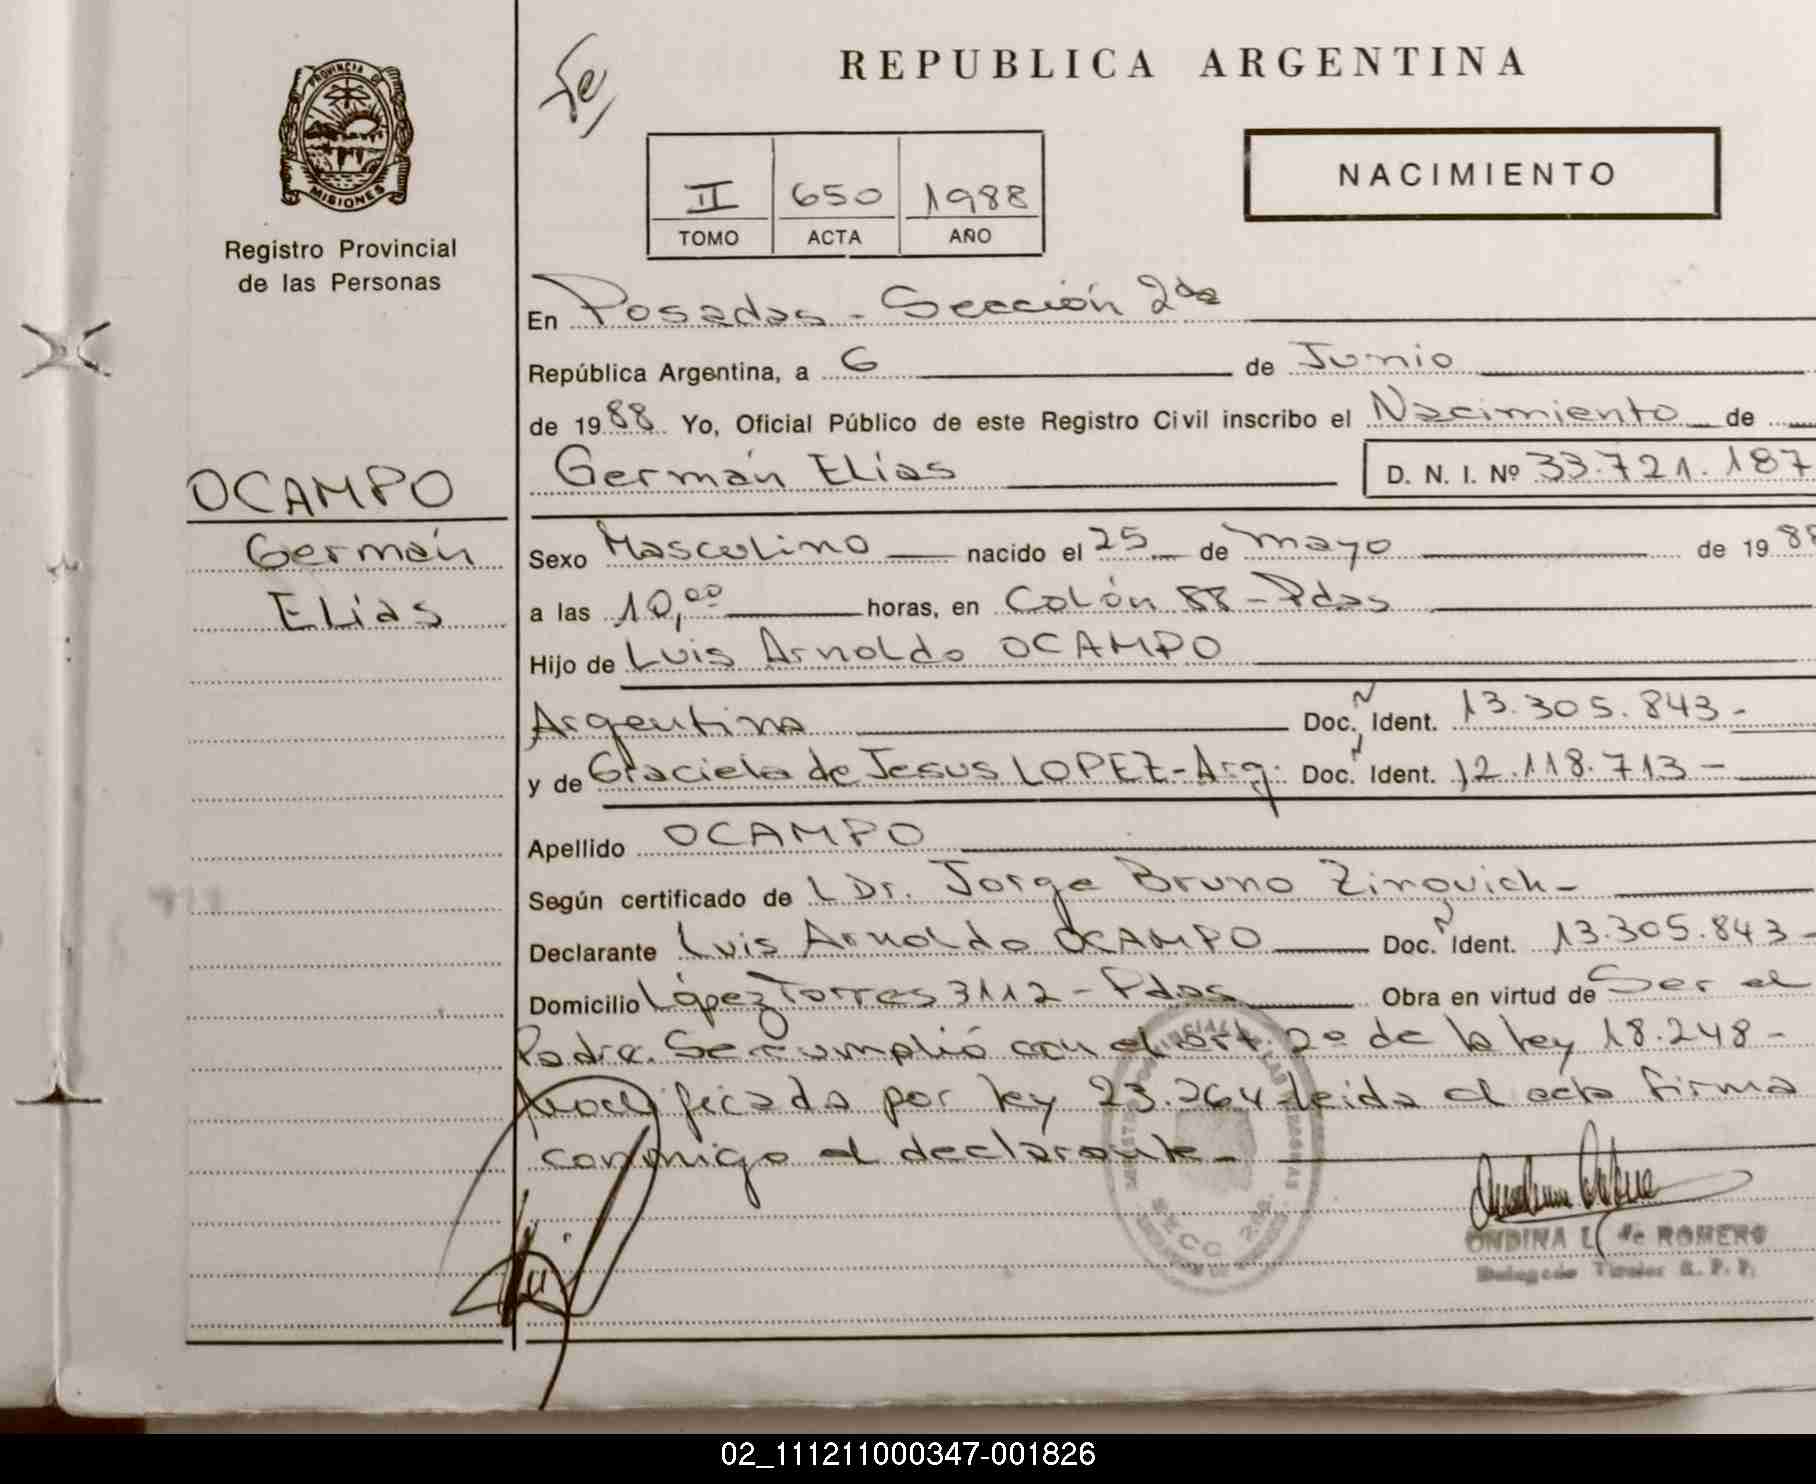 REPUBLICA ARGENTINA
PROVINCIA DE
MISIONES
Registro Provincial
de las Personas
NACIMIENTO
II 650 1988
TOMO ACTA AÑO
En Posadas - Sección 2da
República Argentina, a 6 de Junio
de 1988 Yo, Oficial Público de este Registro Civil inscribo el Nacimiento de
Germán Elías D. N. I. Nº 33.721.187
OCAMPO
Germán
Elías
Sexo Masculino nacido el 25 de mayo de 1988
a las 10,00 horas, en Colón 88 - Pdas
Hijo de Luis Arnoldo OCAMPO
Argentina Doc. Ident. 13.305.843-
y de Graciela de Jesus LOPEZ-Arg. Doc. Ident. 12.118.713-
Apellido OCAMPO
Según certificado de L Dr. Jorge Bruno Zinovich-
Declarante Luis Arnoldo OCAMPO Doc. Ident. 13.305.843-
Domicilio López Torres 3112 - Pdas Obra en virtud de Ser el
Padre. Se cumplió con el art. 2º de la ley 18.248-
modificada por ley 23.264 leida el acta firma
conmigo el declarante-
ONDINA L. de ROMERO
Delegada Titular R. P. P.
02_111211000347-001826